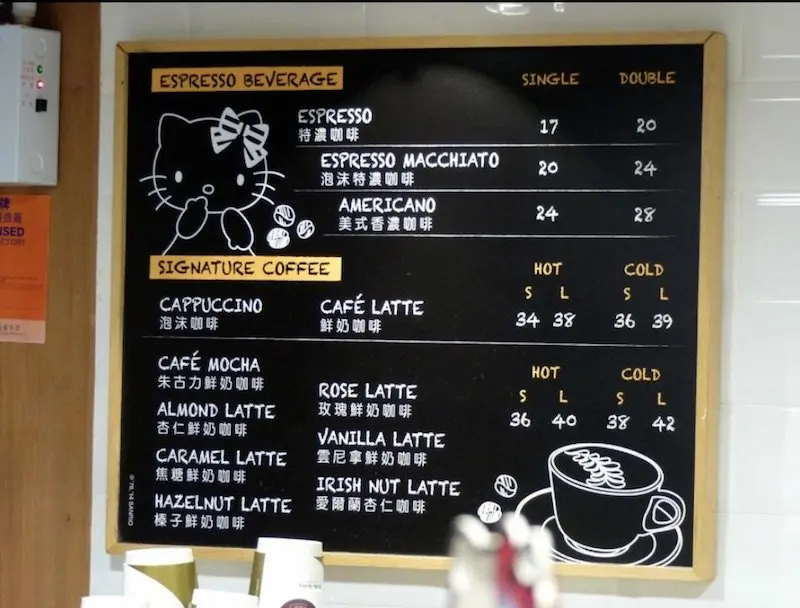 ESPRESSO BEVERAGE SINGLE DOUBLE
ESPRESSO 17 20
特濃咖啡
ESPRESSO MACCHIATO 20 24
泡沫特濃咖啡
AMERICANO 24 28
美式香濃咖啡
SIGNATURE COFFEE HOT COLD
S L S L
CAPPUCCINO CAFÉ LATTE 34 38 36 39
泡沫咖啡 鮮奶咖啡
CAFÉ MOCHA HOT COLD
朱古力鮮奶咖啡
S L S L
ROSE LATTE 36 40 38 42
玫瑰鮮奶咖啡
ALMOND LATTE
杏仁鮮奶咖啡
VANILLA LATTE
雲尼拿鮮奶咖啡
CARAMEL LATTE
焦糖鮮奶咖啡
IRISH NUT LATTE
愛爾蘭杏仁咖啡
HAZELNUT LATTE
榛子鮮奶咖啡
©'76,'14 SANRIO